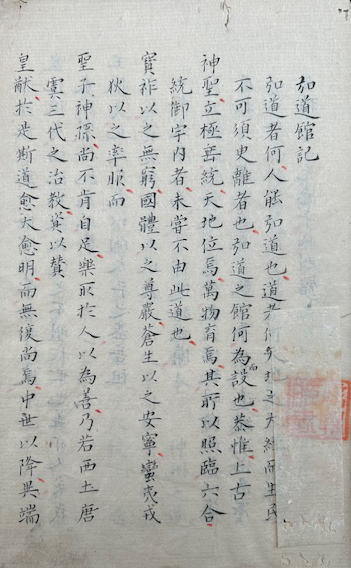 弘道館記
弘道者何人能弘道也道者何天地之大經而生民
不可須臾離者也弘道之館何為而設也恭惟上古
神聖立極垂統天地位焉萬物育焉其所以照臨六合
統御宇内者未嘗不由此道也
寶祚以之無窮國體以之尊嚴蒼生以之安寧蠻夷戎
狄以之率服而
聖子神孫尚不肯自足樂取於人以為善乃若西土唐
虞三代之治教資以賛
皇猷於是斯道愈大愈明而無復尚焉中世以降異端